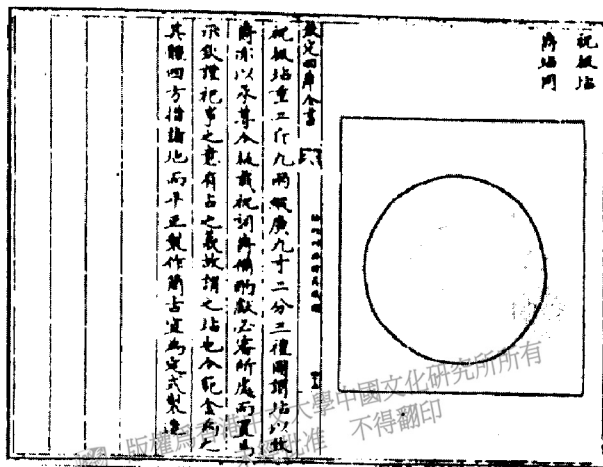 祝板坫
爵坫同
欽定四庫全書
祝板坫重二斤九兩縱廣九寸二分三禮圖謂坫以致
爵亦以承尊今板載祝詞爵備酌獻必審所處而置焉
示欽謹祀事之意有占之義故謂之坫也今範金為之
其體四方措諸地而平正製作簡古宜為定式製造
版權為香港中文大學中國文化研究所所有
批准 不得翻印